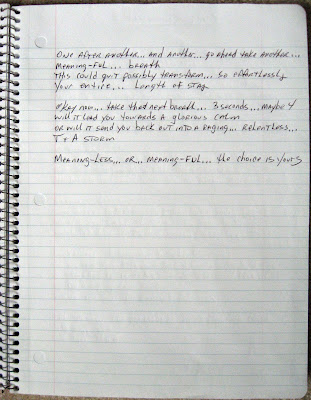 One after another... and another... go ahead take another...
meaning-ful... breath
This could quit possibly transform... so effortlessly
your entire... length of stay
okay now... take that next breath... 3 seconds... maybe 4
will it lead you towards a glorious calm
or will it send you back out into a raging... relentless...
T + A storm
Meaning-less... or... meaning-ful... the choice is yours